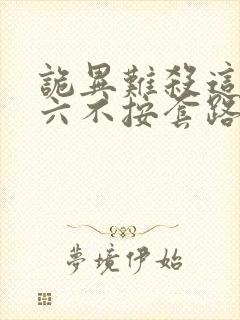 詭異難殺這
六不按套路
夢境伊始